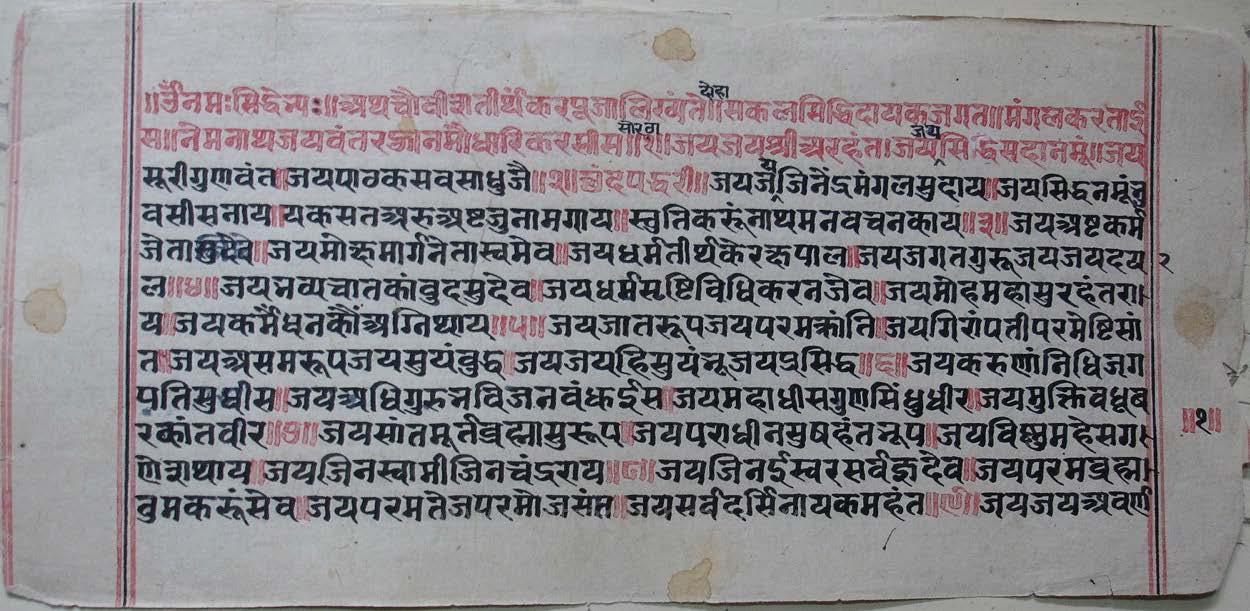 ॥ॐनमःसिद्देभ्यः॥अथचौवीशतीर्थंकरपूजालिख्यंते॥दोहा॥सकलसिद्धिदायकजगत॥मंगलकरताई
स॥नेमनाथजयवंतरज्ञानमौधारिकरसीस॥१॥सोरठा॥जयजयश्रीअरहंत।जयसिद्धसदानमूं॥जय
सूरीगुणवंत॥जयपाठकसवसाधुजै॥२॥छंदपद्धरी॥जयजयजिनेंद्रमंगलसुदाय॥जयसिद्धनमूं
वसीसनाय॥यकसतअरुअष्टजुनामगाय॥स्तुतिकरूंनाथमनवचनकाय॥३॥जयअष्टकर्म
जेता॥जयमोक्षमार्गनेतास्वमेव॥जयधर्मतीर्थकेरक्षपाल॥जयजगतगुरूजयजयदय
ल॥४॥जयभव्यचातकांवुदसुदेव॥जयधर्मसृष्टिविधिकरनजेव॥जयमोहमहासुरहंतरा
य॥जयकर्मेंधनकौंअग्निथाय॥५॥जयजातरूपजयपरमक्रांति॥जयगिरांपतीपरमेष्टिसां
त॥जयअसमरूपजयसुयंवुद्ध॥जयजयहिसुयंभूजयप्रसिद्ध॥६॥जयकरुणांनिधिजग
पतिसुधीस॥जयअधिगुरुभविजनवंधईस॥जयमहाधीसगुणसिंधुधीर॥जयमुक्तिवधूव
रकांतवीर॥७॥जयसांतमूर्तव्रह्मासुरूप॥जयपराधीनसुषहंतभूप॥जयविष्णुमहेसग
णेशथाय॥जयजिनस्वामीजिनचंद्रराय॥८॥जयजिनईस्वरसर्वज्ञदेव॥जयपरमव्रह्म
वुमकरूंसेव॥जयपरमतेजपरमोजसंत॥जयसर्वदर्सिनायकमहंत॥९॥जयजयअवर्ण
॥१॥